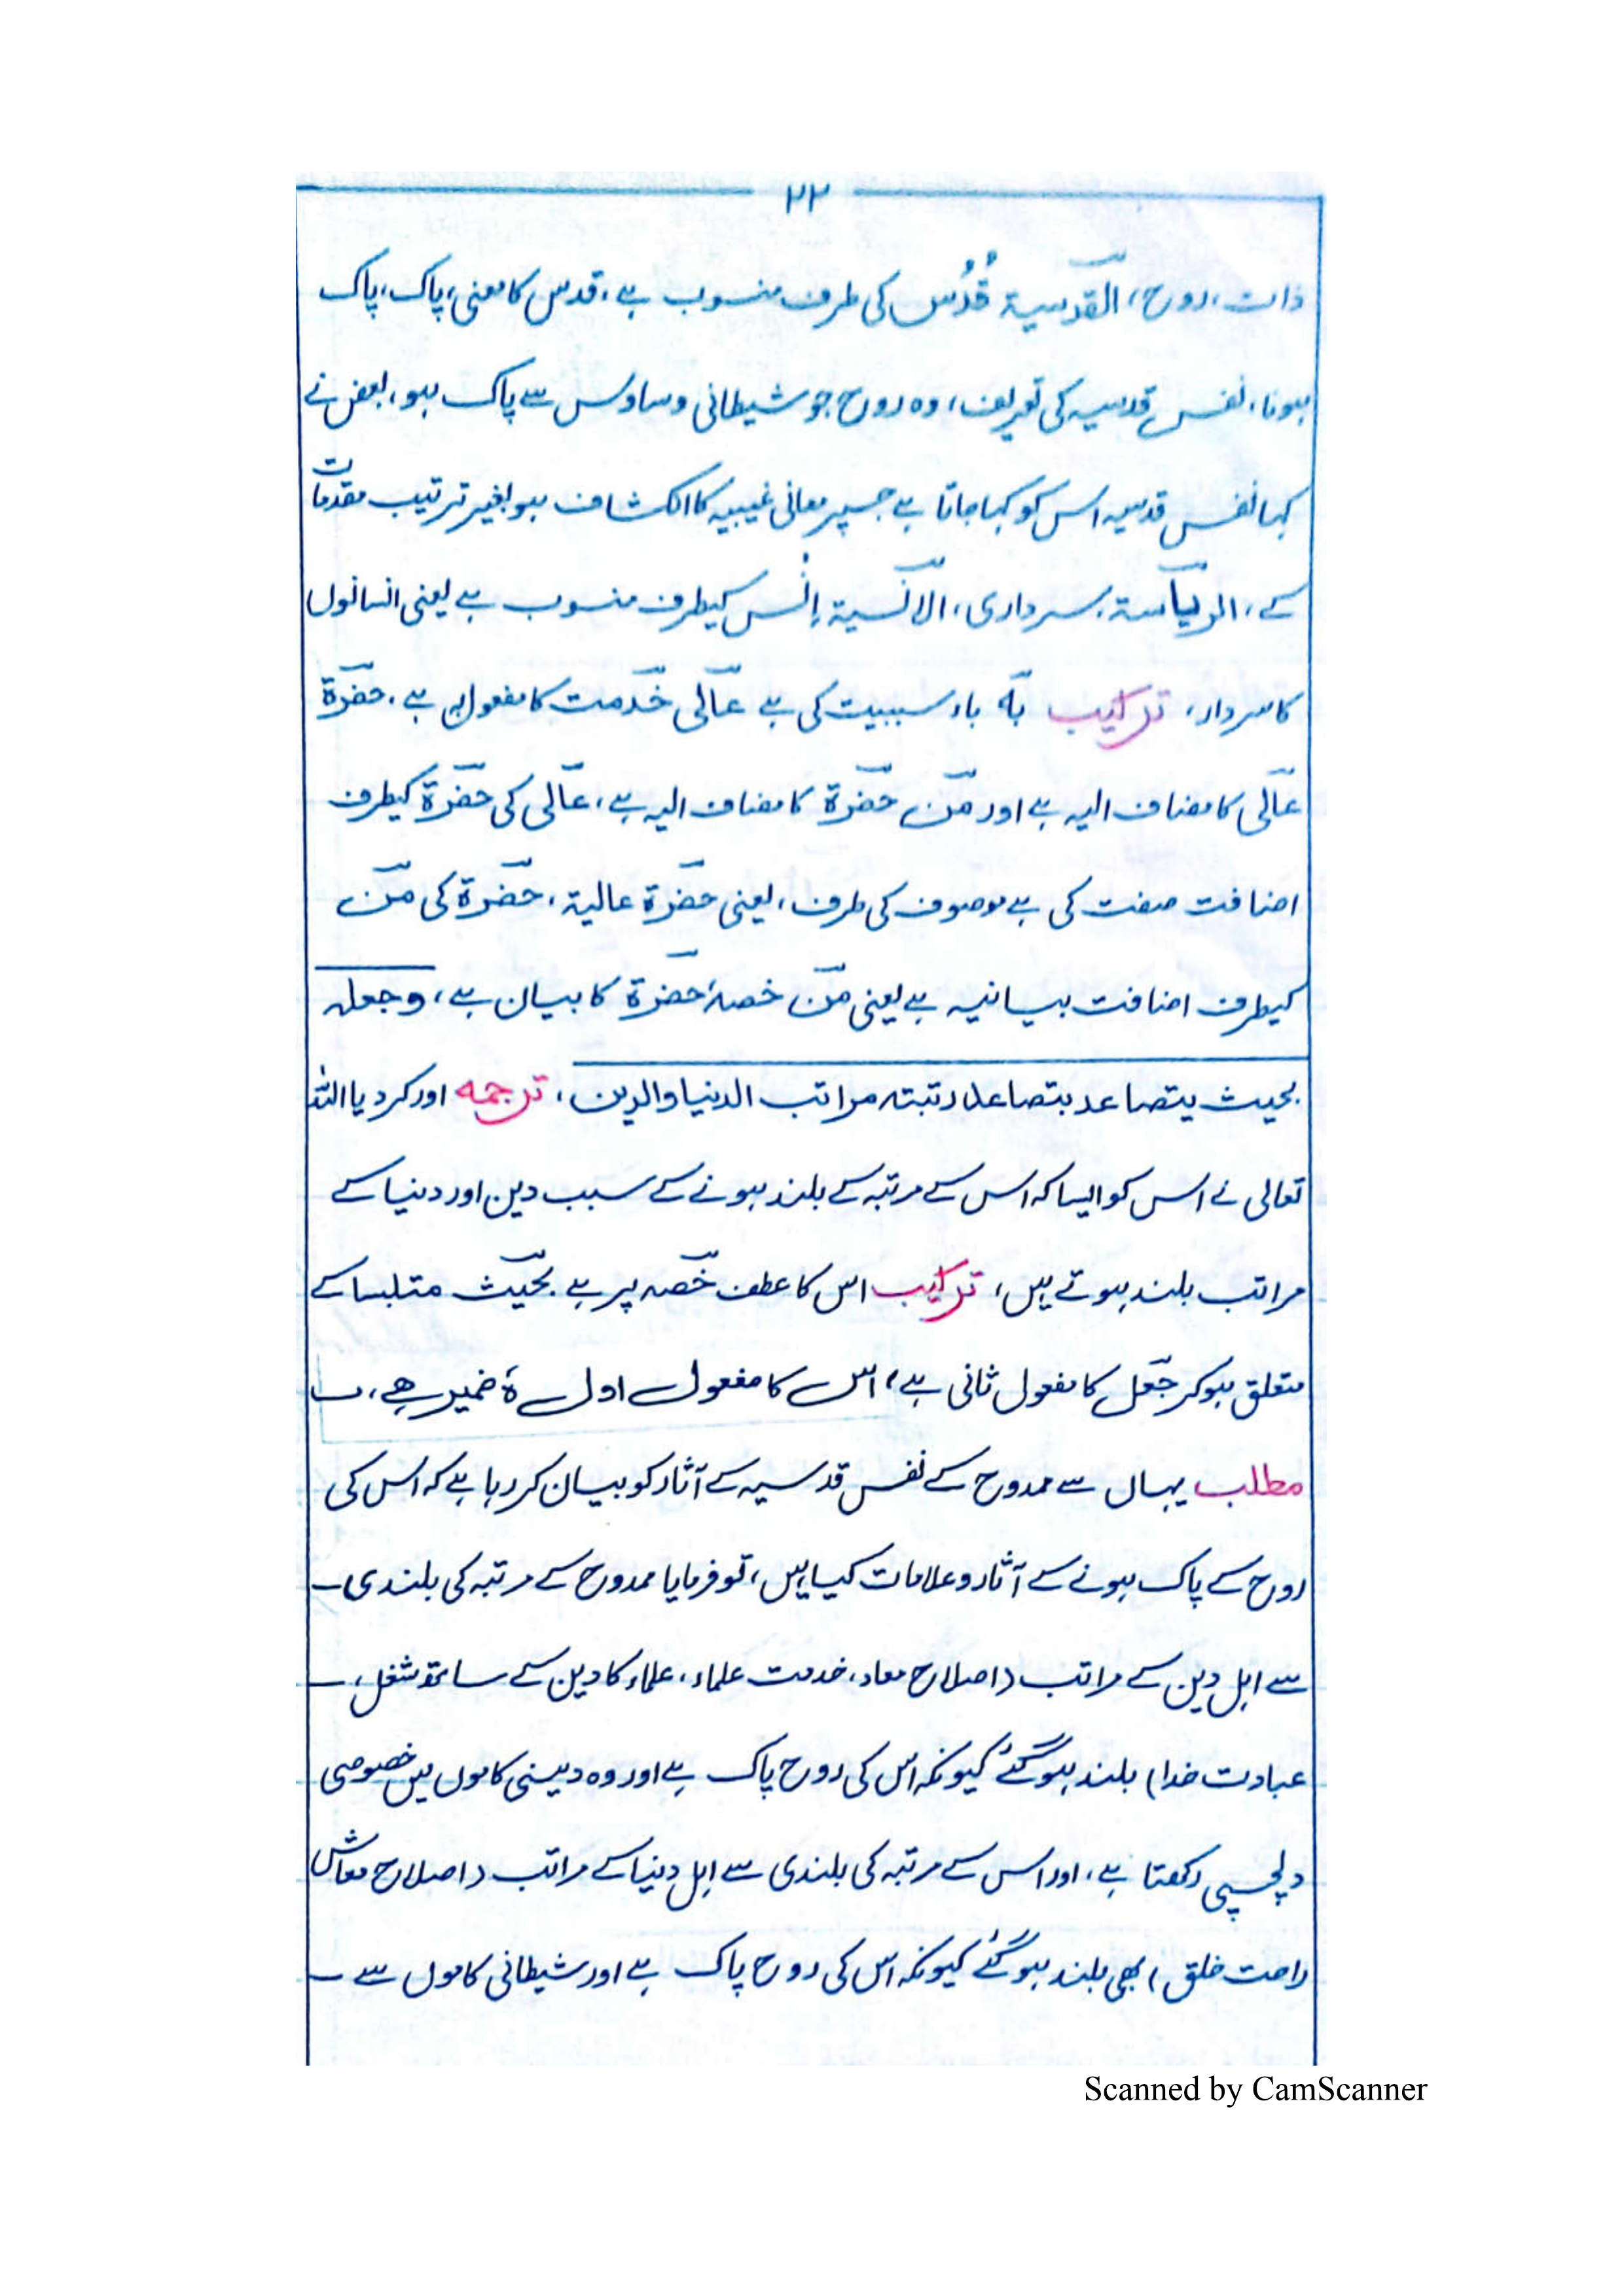 ۲۲
ذات، روح، القدسیة قُدُس کی طرف منسوب ہے، قدس کا معنی، پاک، پاک
ہونا، نفس قدسیہ کی تعریف، وہ روح جو شیطانی وساوس سے پاک ہو، بعض نے
کہا نفس قدسیہ اس کو کہا جاتا ہے جسپر معانی غیبیہ کا انکشاف ہو بغیر ترتیب مقدمات
کے، الریاسة، سرداری، الانسیة اِنس کیطرف منسوب ہے یعنی انسانوں
کا سردار، ترکیب بہ باء سببیت کی ہے عالی خدمت کا مفعول بہ ہے، حضرة
عالی کا مضاف الیہ ہے اور من حضرة کا مضاف الیہ ہے، عالی کی حضرة کیطرف
اضافت صفت کی ہے موصوف کی طرف، یعنی حضرة عالیة، حضرة کی من
کیطرف اضافت بیانیہ ہے یعنی من خصہ، حضرة کا بیان ہے، وجعله
بحیث یتصاعد بتصاعد رتبته مراتب الدنیا والدین، ترجمہ اور کر دیا اللہ
تعالی نے اس کو ایسا کہ اس کے مرتبہ کے بلند ہونے کے سبب دین اور دنیا کے
مراتب بلند ہوتے ہیں، ترکیب اس کا عطف خصہ پر ہے بحیث متلبسا کے
متعلق ہو کر جعل کا مفعول ثانی ہے، اس کا مفعول اول ہ ضمیر ہے،
مطلب یہاں سے ممدوح کے نفس قدسیہ کے آثار کو بیان کر رہا ہے کہ اس کی
روح کے پاک ہونے کے آثار و علامات کیا ہیں، تو فرمایا ممدوح کے مرتبہ کی بلندی
سے اہل دین کے مراتب (اصلاح معاد، خدمت علماء، علماء کا دین کے ساتھ شغل،
عبادت خدا) بلند ہو گئے کیونکہ اس کی روح پاک ہے اور وہ دینی کاموں میں خصوصی
دلچسپی رکھتا ہے، اور اس کے مرتبہ کی بلندی سے اہل دنیا کے مراتب (اصلاح معاش
راحت خلق) بھی بلند ہو گئے کیونکہ اس کی روح پاک ہے اور شیطانی کاموں سے
Scanned by CamScanner